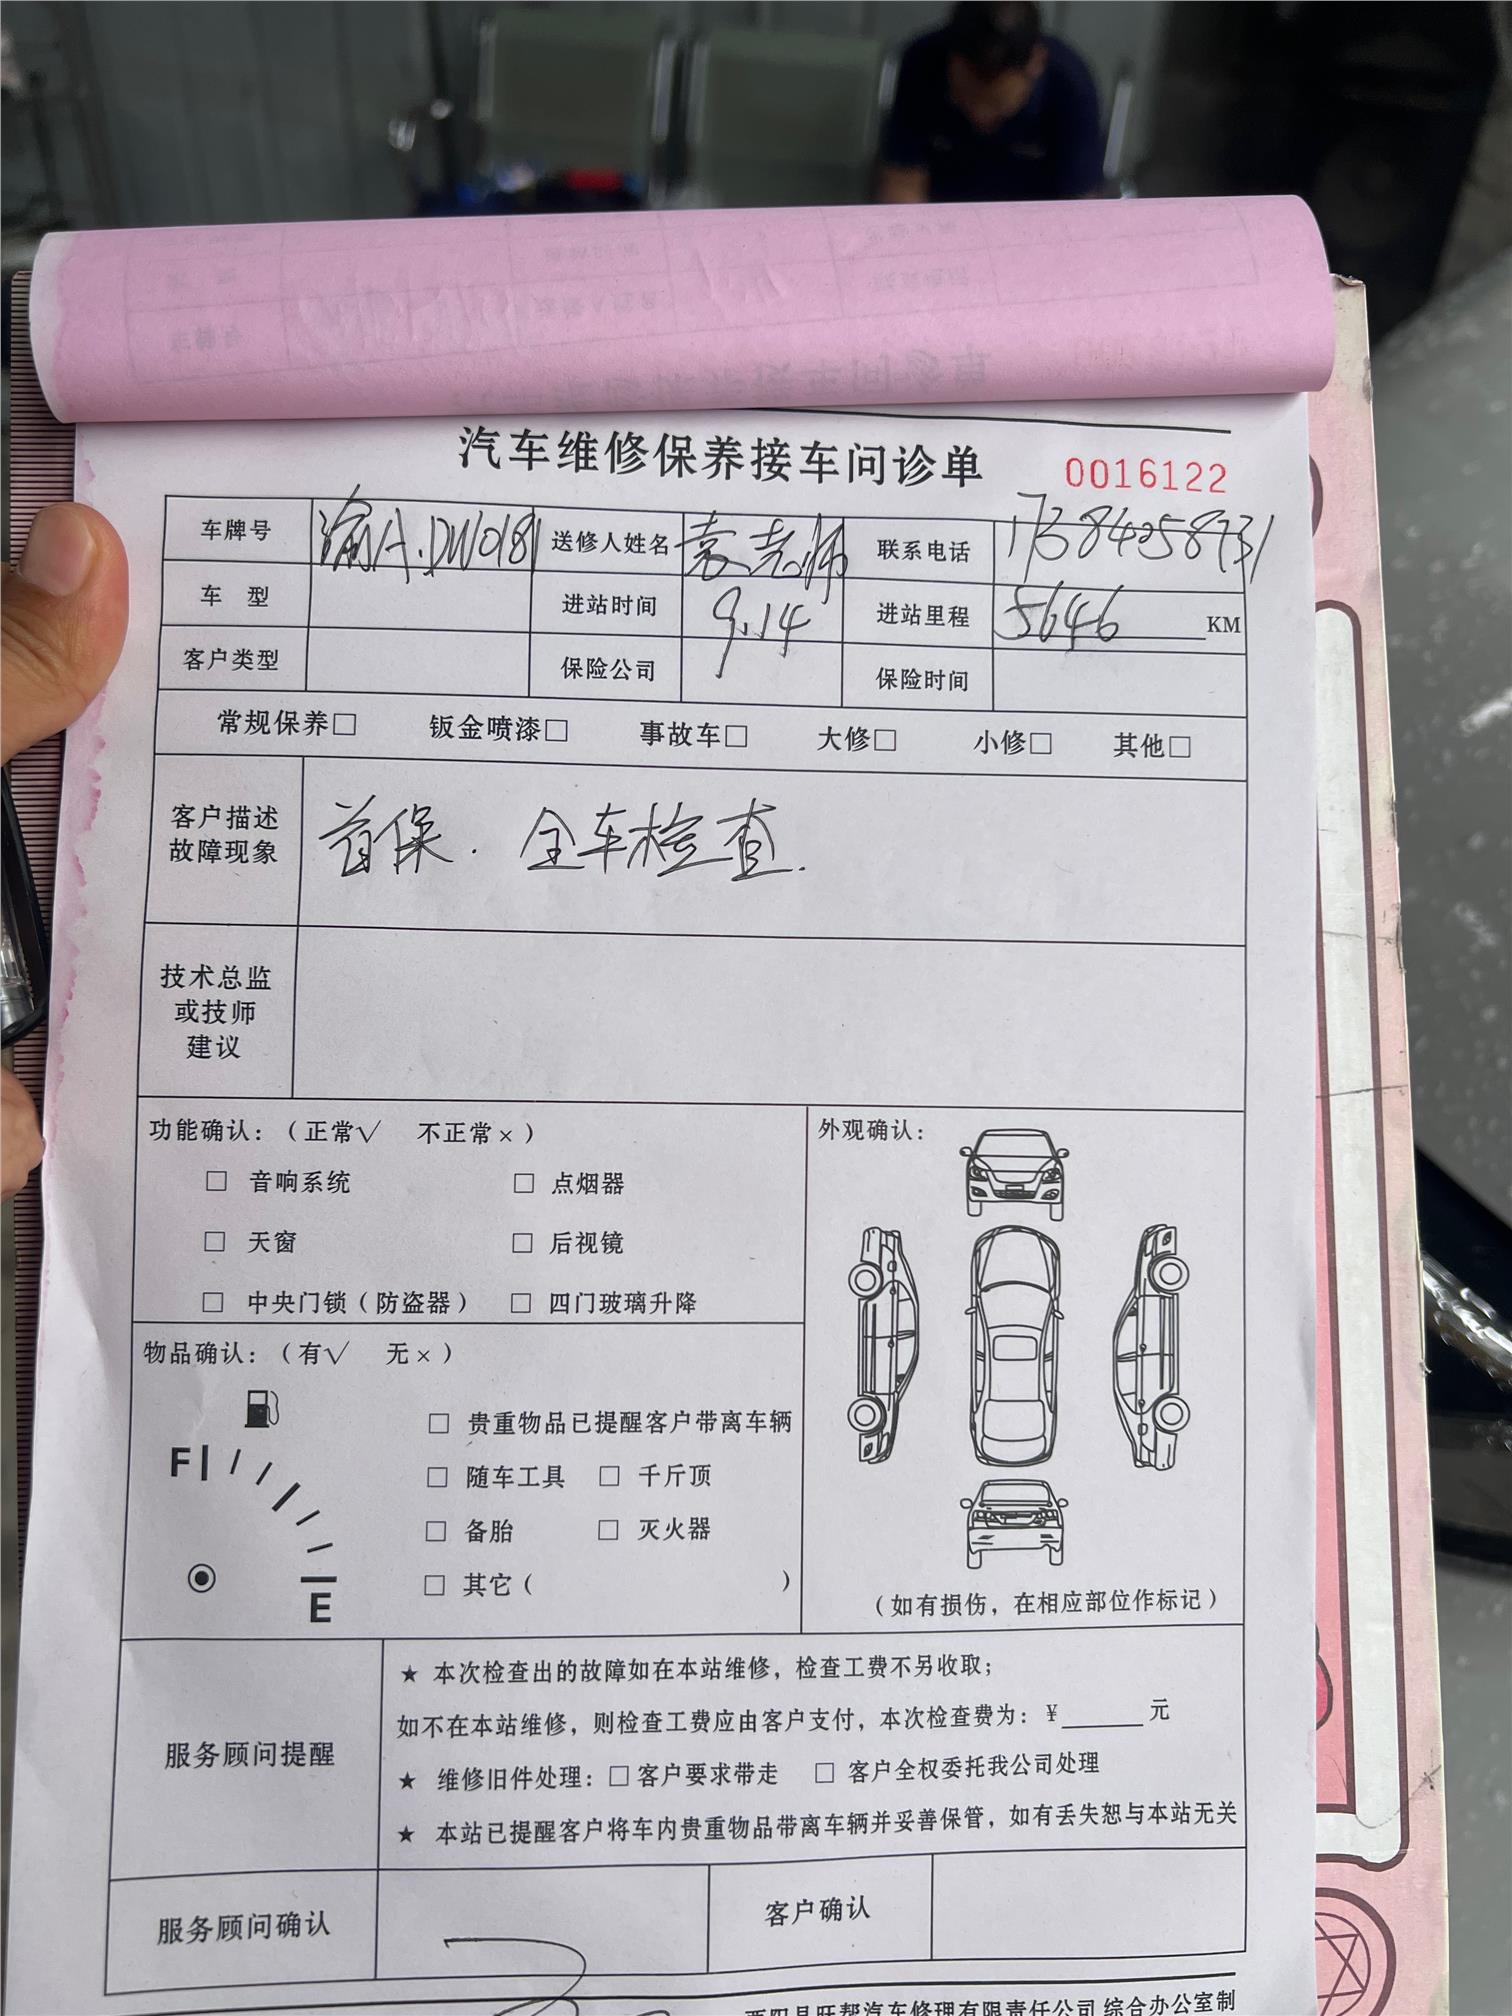 汽车维修保养接车问诊单 0016122
车牌号 渝A.DW0181 送修人姓名 袁老师 联系电话 17384258731
车 型 进站时间 9.14 进站里程 5646 KM
客户类型 保险公司 保险时间
常规保养□ 钣金喷漆□ 事故车□ 大修□ 小修□ 其他□
客户描述
故障现象
首保. 全车检查.
技术总监
或技师
建议
功能确认:(正常√ 不正常×)
□ 音响系统 □ 点烟器
□ 天窗 □ 后视镜
□ 中央门锁(防盗器) □ 四门玻璃升降
外观确认:
(如有损伤,在相应部位作标记)
物品确认:(有√ 无×)
F
E
□ 贵重物品已提醒客户带离车辆
□ 随车工具 □ 千斤顶
□ 备胎 □ 灭火器
□ 其它( )
服务顾问提醒
★ 本次检查出的故障如在本站维修,检查工费不另收取;
如不在本站维修,则检查工费应由客户支付,本次检查费为:¥______元
★ 维修旧件处理:□客户要求带走 □ 客户全权委托我公司处理
★ 本站已提醒客户将车内贵重物品带离车辆并妥善保管,如有丢失恕与本站无关
服务顾问确认 客户确认
酉阳县旺帮汽车修理有限责任公司 综合办公室制